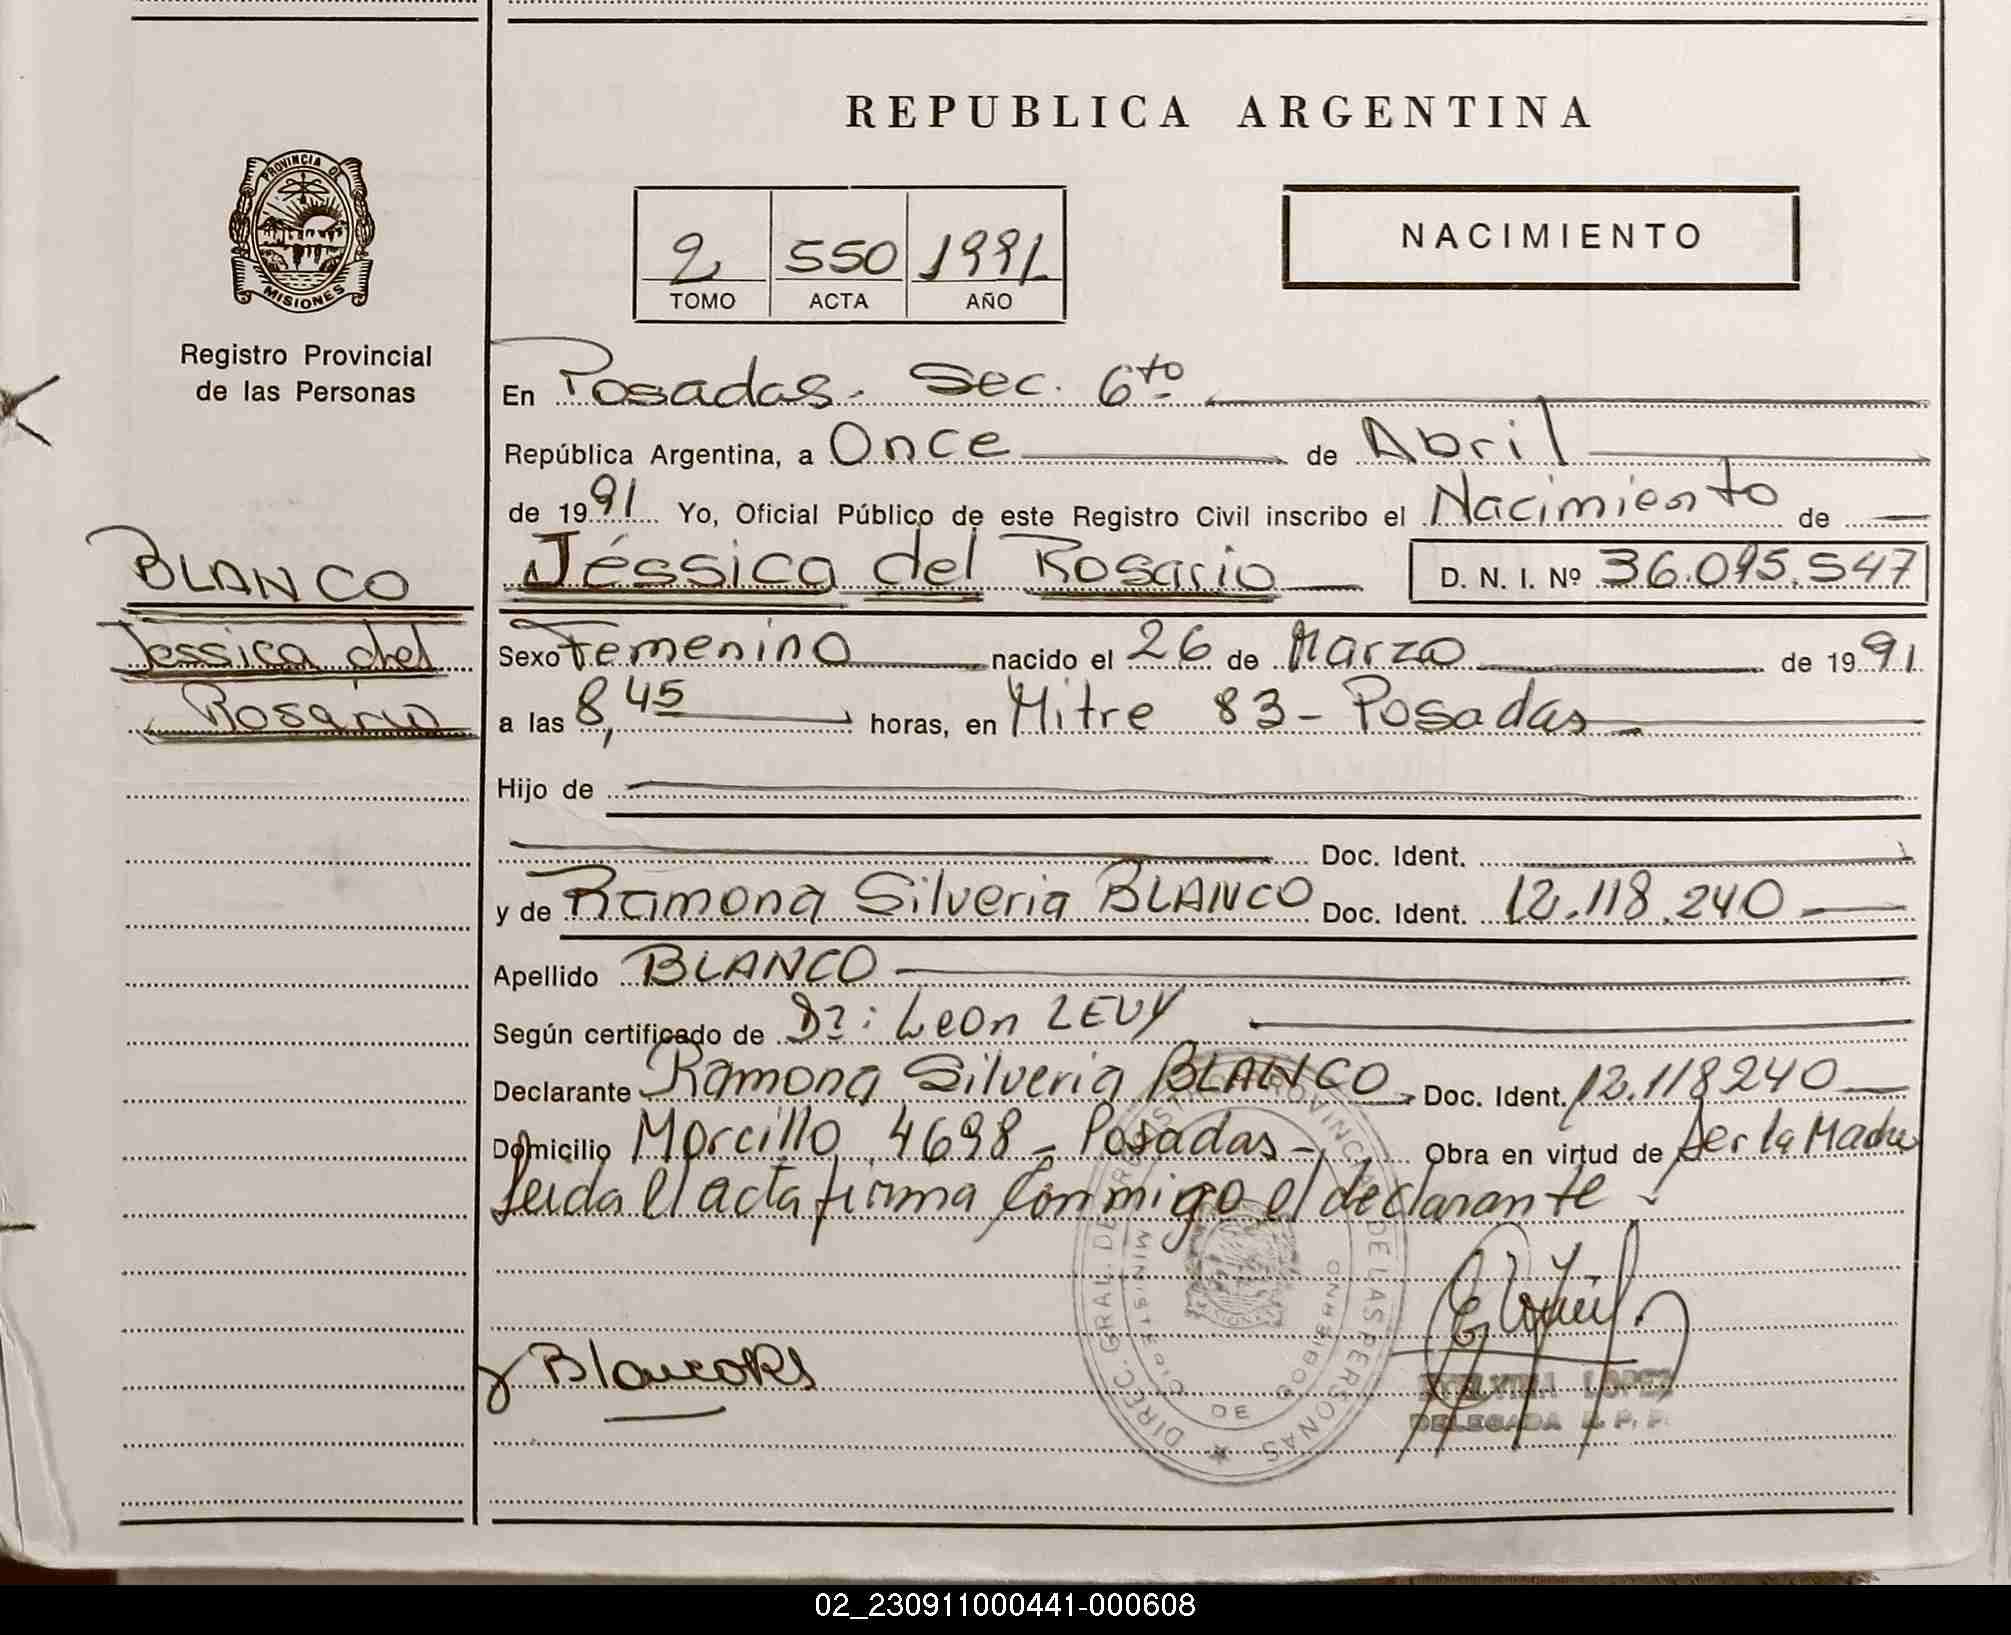 REPUBLICA ARGENTINA
PROVINCIA DE MISIONES
Registro Provincial
de las Personas
2 550 1991
TOMO ACTA AÑO
NACIMIENTO
En Posadas - Sec. 6to
República Argentina, a Once de Abril
de 1991 Yo, Oficial Público de este Registro Civil inscribo el Nacimiento de
Jéssica del Rosario D. N. I. Nº 36.095.547
BLANCO
Jessica del
Rosario
Sexo Femenino nacido el 26 de Marzo de 1991
a las 8,45 horas, en Mitre 83 - Posadas
Hijo de
Doc. Ident.
y de Ramona Silveria BLANCO Doc. Ident. 12.118.240
Apellido BLANCO
Según certificado de Dr: Leon LEVY
Declarante Ramona Silveria BLANCO Doc. Ident. 12.118240
Domicilio Morcillo 4698 - Posadas - Obra en virtud de Ser la Madre
Leida el acta firma conmigo el declarante
DIREC. GRAL. DE REGISTRO PROVINCIAL DE LAS PERSONAS
MINISTERIO DE GOBIERNO
Blanco RS
LOPEZ
DELEGADA R. P. P.
02_230911000441-000608